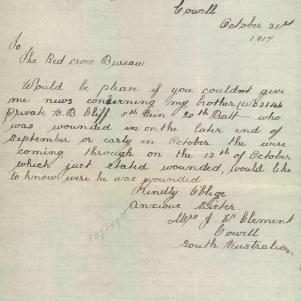 Cowell
October 31st
1917
To
The Red cross Bureau
Would be please if you couldnt give
me news concerning my brother,
Private H. D. Cliff 5th Rein 50th Batt who
was wounded in on the later end of
September or early in October the wire
coming through on the 12th of October
which just stated wounded, would like
to know were he was wounded
Kindly Oblige
Anxious Sister
Mrs J W Clement
Cowell
South Australia